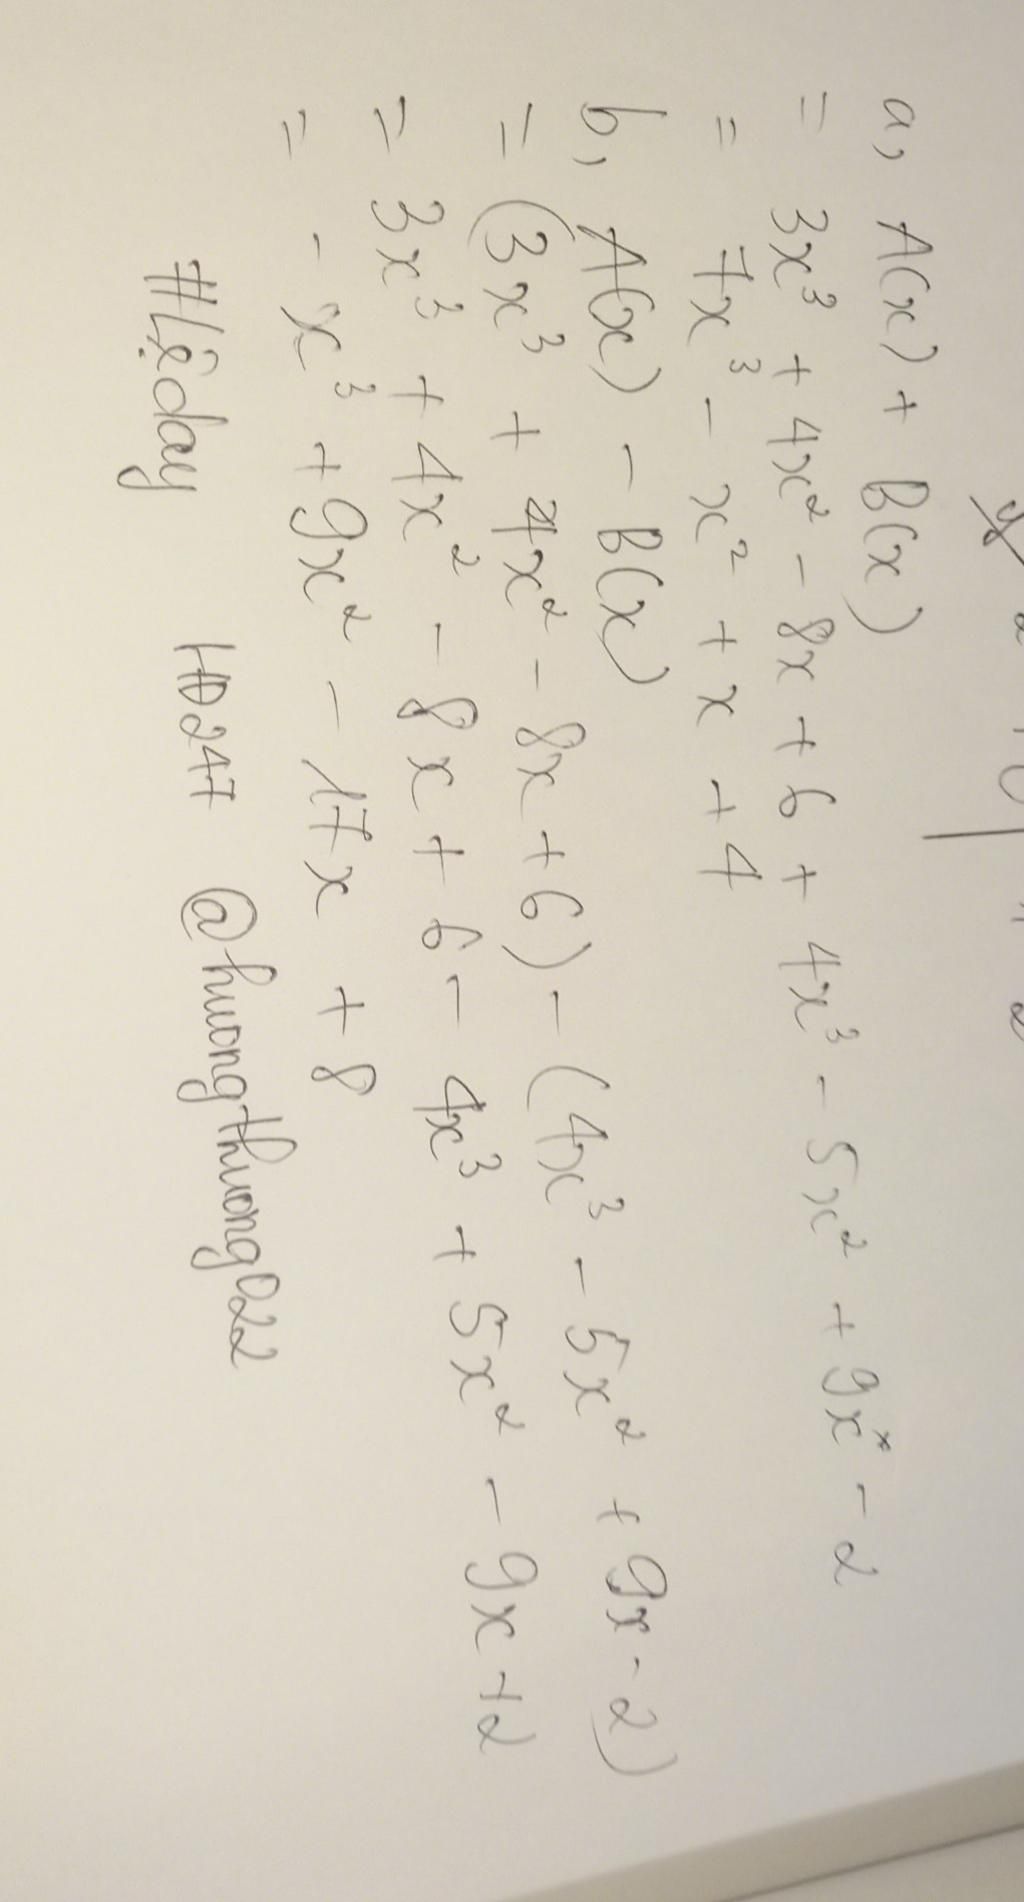 a, A(x) + B(x)
= 3x³ + 4x² - 8x + 6 + 4x³ - 5x² + 9x - 2
= 7x³ - x² + x + 4
b, A(x) - B(x)
= (3x³ + 4x² - 8x + 6) - (4x³ - 5x² + 9x - 2)
= 3x³ + 4x² - 8x + 6 - 4x³ + 5x² - 9x + 2
= - x³ + 9x² - 17x + 8
HD247 @huongthuong022